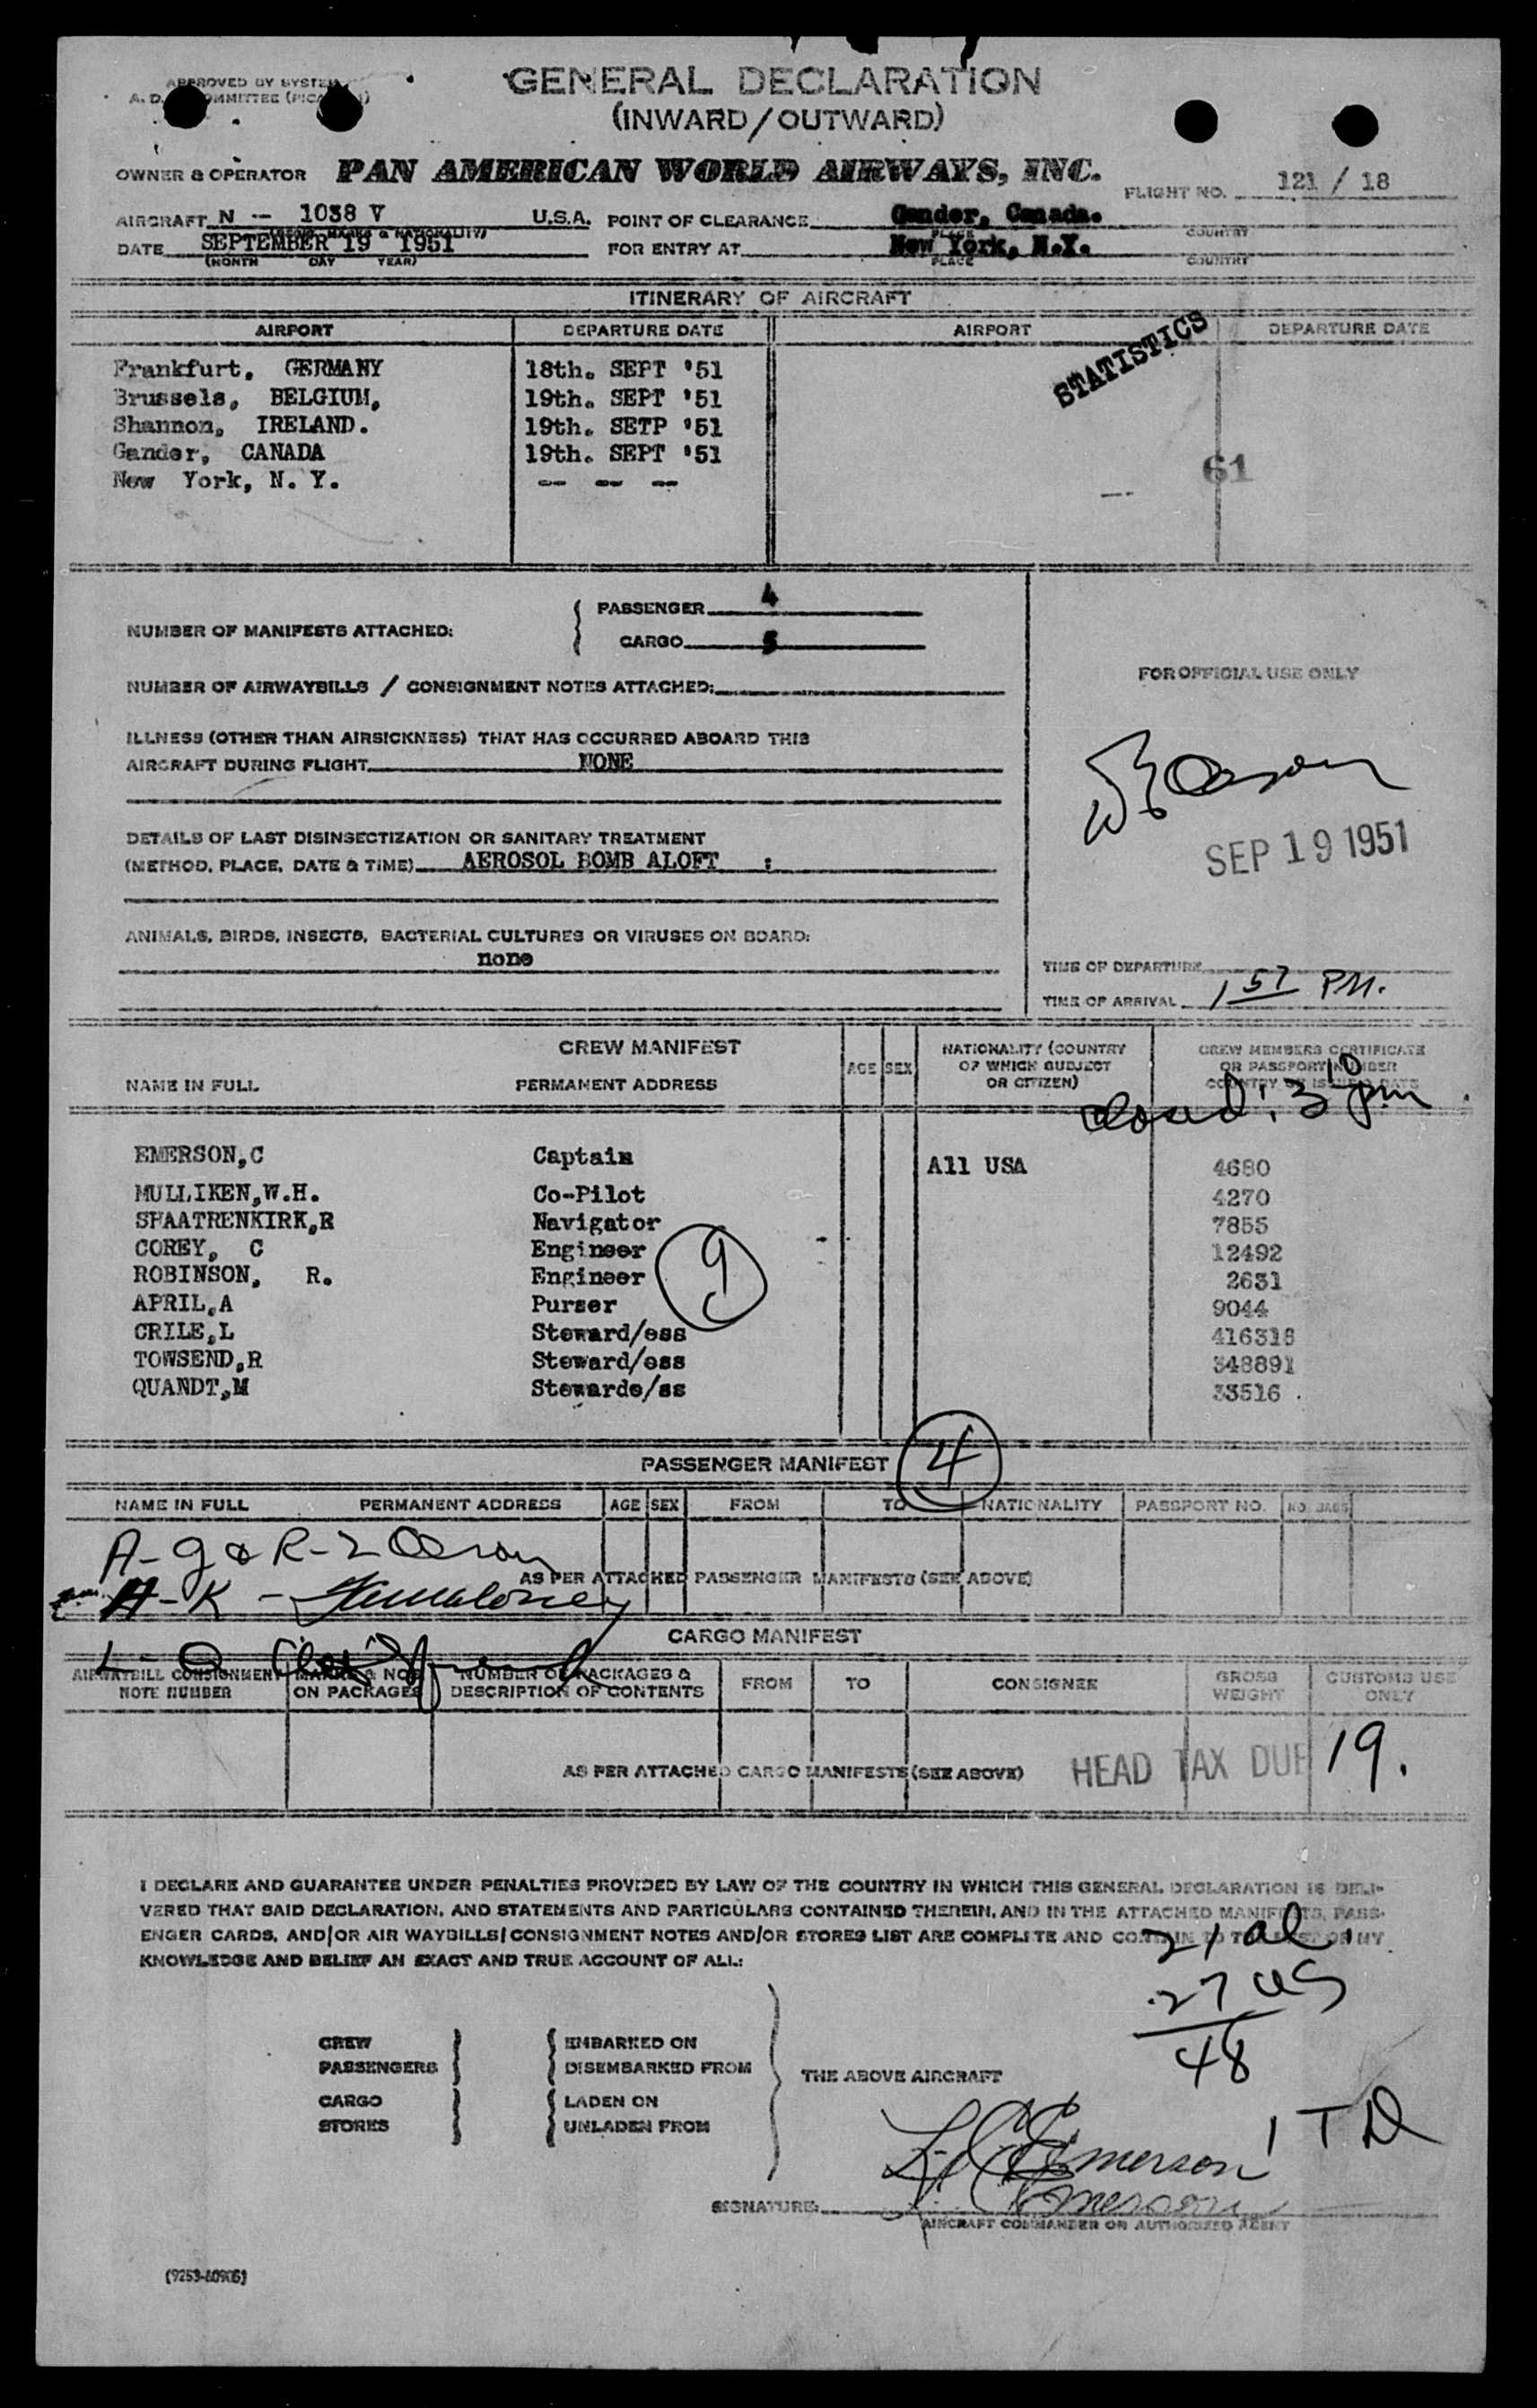 APPROVED BY SYSTEM
A. D. COMMITTEE
GENERAL DECLARATION
(INWARD/OUTWARD)
OWNER & OPERATOR PAN AMERICAN WORLD AIRWAYS, INC.
FLIGHT NO. 121 / 18
AIRCRAFT N -- 1038 V U.S.A. POINT OF CLEARANCE Gander, Canada.
PLACE COUNTRY
DATE SEPTEMBER 19 1951 FOR ENTRY AT New York, N.Y.
(MONTH DAY YEAR) PLACE COUNTRY
ITINERARY OF AIRCRAFT
AIRPORT DEPARTURE DATE AIRPORT DEPARTURE DATE
STATISTICS
Frankfurt, GERMANY 18th. SEPT '51
Brussels, BELGIUM, 19th. SEPT '51
Shannon, IRELAND. 19th. SETP '51
Gander, CANADA 19th. SEPT '51
61
New York, N. Y. -- -- --
PASSENGER 4
NUMBER OF MANIFESTS ATTACHED:
CARGO 5
NUMBER OF AIRWAYBILLS / CONSIGNMENT NOTES ATTACHED:
FOR OFFICIAL USE ONLY
ILLNESS (OTHER THAN AIRSICKNESS) THAT HAS OCCURRED ABOARD THIS
AIRCRAFT DURING FLIGHT NONE
SEP 19 1951
DETAILS OF LAST DISINSECTIZATION OR SANITARY TREATMENT
(METHOD, PLACE, DATE & TIME) AEROSOL BOMB ALOFT :
ANIMALS, BIRDS, INSECTS, BACTERIAL CULTURES OR VIRUSES ON BOARD:
none
TIME OF DEPARTURE
TIME OF ARRIVAL 1 57 PM.
CREW MANIFEST
NAME IN FULL PERMANENT ADDRESS AGE SEX
NATIONALITY (COUNTRY
OF WHICH SUBJECT
OR CITIZEN)
CREW MEMBERS CERTIFICATE
OR PASSPORT NUMBER
COUNTRY OF ISSUE & DATE
closed! 3 10 pm
EMERSON,C Captain All USA 4680
MULLIKEN,W.H. Co-Pilot 4270
SPAATRENKIRK,R Navigator 7855
COREY, C Engineer 12492
ROBINSON, R. Engineer 2631
9
APRIL,A Purser 9044
CRILE,L Steward/ess 416318
TOWSEND,R Steward/ess 348891
QUANDT,M Stewarde/ss 33516 .
PASSENGER MANIFEST 4
NAME IN FULL PERMANENT ADDRESS AGE SEX FROM TO NATIONALITY PASSPORT NO. NO. BAGS
A-g & R-2
AS PER ATTACHED PASSENGER MANIFESTS (SEE ABOVE)
H-K -
CARGO MANIFEST
AIRWAYBILL CONSIGNMENT
NOTE NUMBER
MARKS & NOS
ON PACKAGES
NUMBER OF PACKAGES &
DESCRIPTION OF CONTENTS
FROM TO CONSIGNEE
GROSS
WEIGHT
CUSTOMS USE
ONLY
AS PER ATTACHED CARGO MANIFESTS (SEE ABOVE)
HEAD TAX DUE 19.
I DECLARE AND GUARANTEE UNDER PENALTIES PROVIDED BY LAW OF THE COUNTRY IN WHICH THIS GENERAL DECLARATION IS DELI-
VERED THAT SAID DECLARATION, AND STATEMENTS AND PARTICULARS CONTAINED THEREIN, AND IN THE ATTACHED MANIFESTS, PASS-
ENGER CARDS, AND/OR AIR WAYBILLS/CONSIGNMENT NOTES AND/OR STORES LIST ARE COMPLETE AND CONTAIN TO THE BEST OF MY
KNOWLEDGE AND BELIEF AN EXACT AND TRUE ACCOUNT OF ALL:
21 al.
27 US
48
CREW EMBARKED ON
PASSENGERS DISEMBARKED FROM
THE ABOVE AIRCRAFT
CARGO LADEN ON
STORES UNLADEN FROM
1 TD
L. C. Emerson
SIGNATURE: Emerson
AIRCRAFT COMMANDER OR AUTHORIZED AGENT